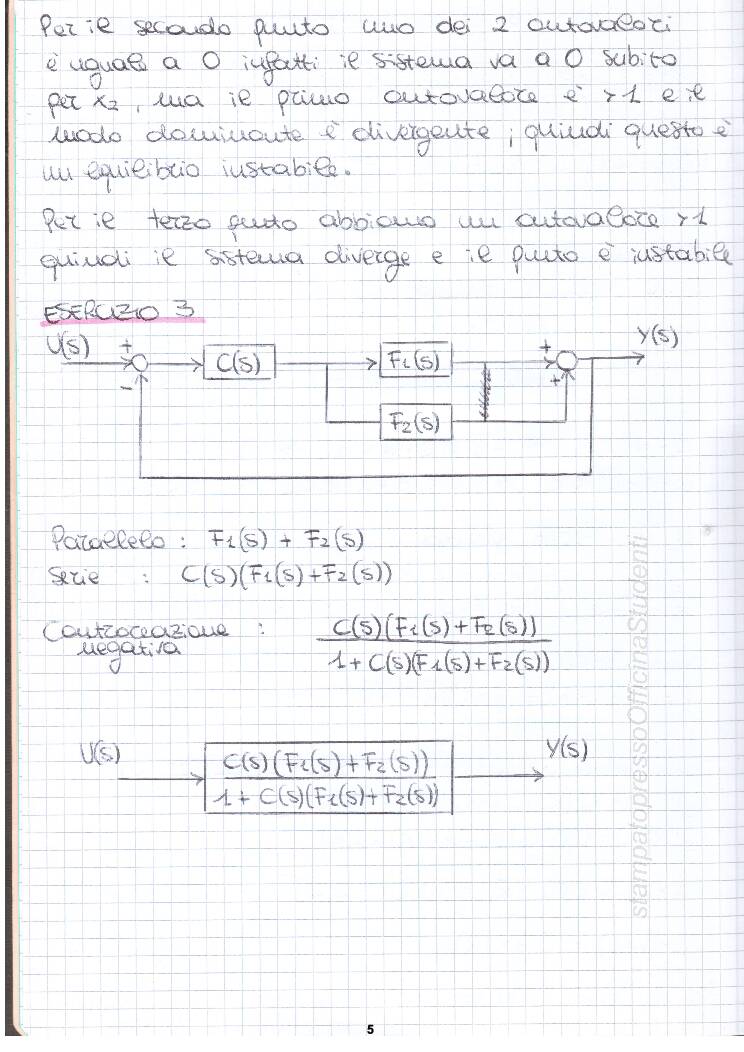 Per il secondo punto uno dei 2 autovalori
è uguale a 0 infatti il sistema va a 0 subito
per x₂, ma il primo autovalore è >1 e il
modo dominante è divergente, quindi questo è
un equilibrio instabile.
Per il terzo punto abbiamo un autovalore >1
quindi il sistema diverge e il punto è instabile
ESERCIZIO 3
U(s) + - C(s) F1(s) + + Y(s)
F2(s)
Parallelo : F1(s) + F2(s)
Serie : C(s)(F1(s)+F2(s))
Controreazione negativa : C(s)(F1(s)+F2(s))
1 + C(s)(F1(s)+F2(s))
U(s) C(s)(F1(s)+F2(s)) Y(s)
1 + C(s)(F1(s)+F2(s))
stampatopressoOfficinaStudenti
5